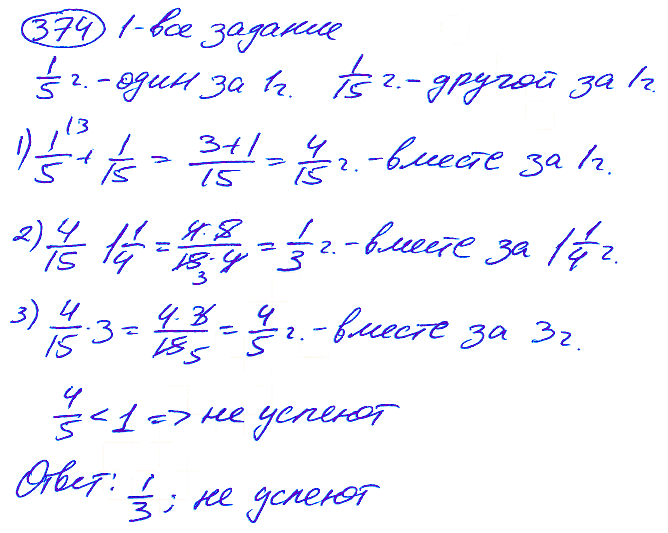 374 1-все задание
1/5 г.-один за 1г. 1/15 г.-другой за 1г.
1) 1/5 ^(3 + 1/15 = 3+1/15 = 4/15 г.-вместе за 1г.
2) 4/15 1 1/4 = 4·5/15·4 3 = 1/3 г.-вместе за 1 1/4 г.
3) 4/15 · 3 = 4·3/15 5 = 4/5 г.-вместе за 3г.
4/5 < 1 => не успеют
Ответ: 1/3; не успеют